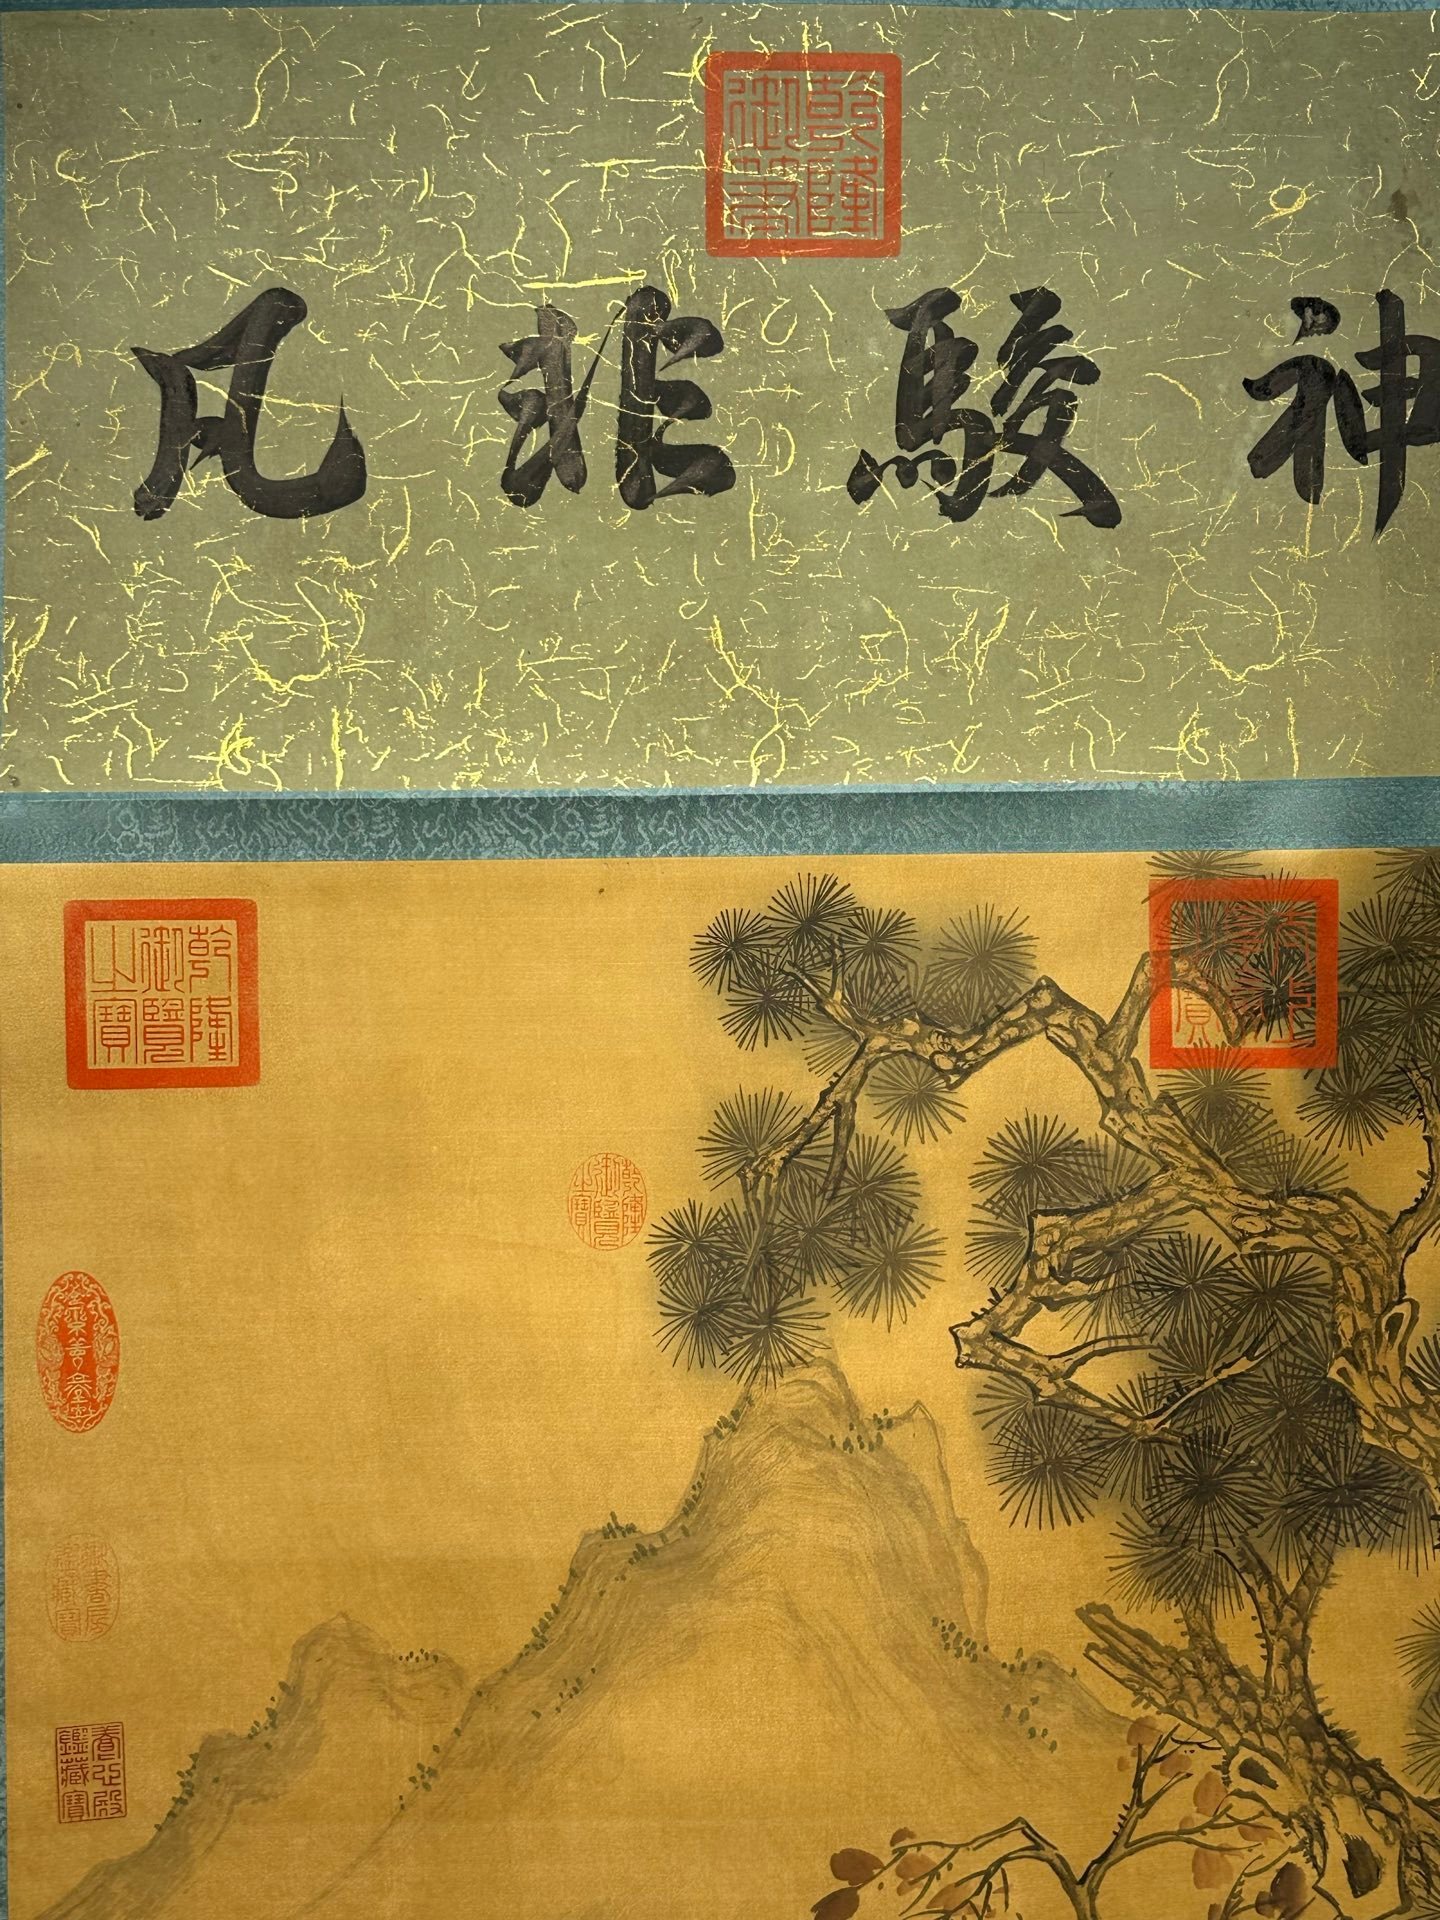 神駿非凡
乾隆御筆
乾隆御覽之寶
乾隆御覽之寶
御書房鑑藏寶
養心殿鑑藏寶